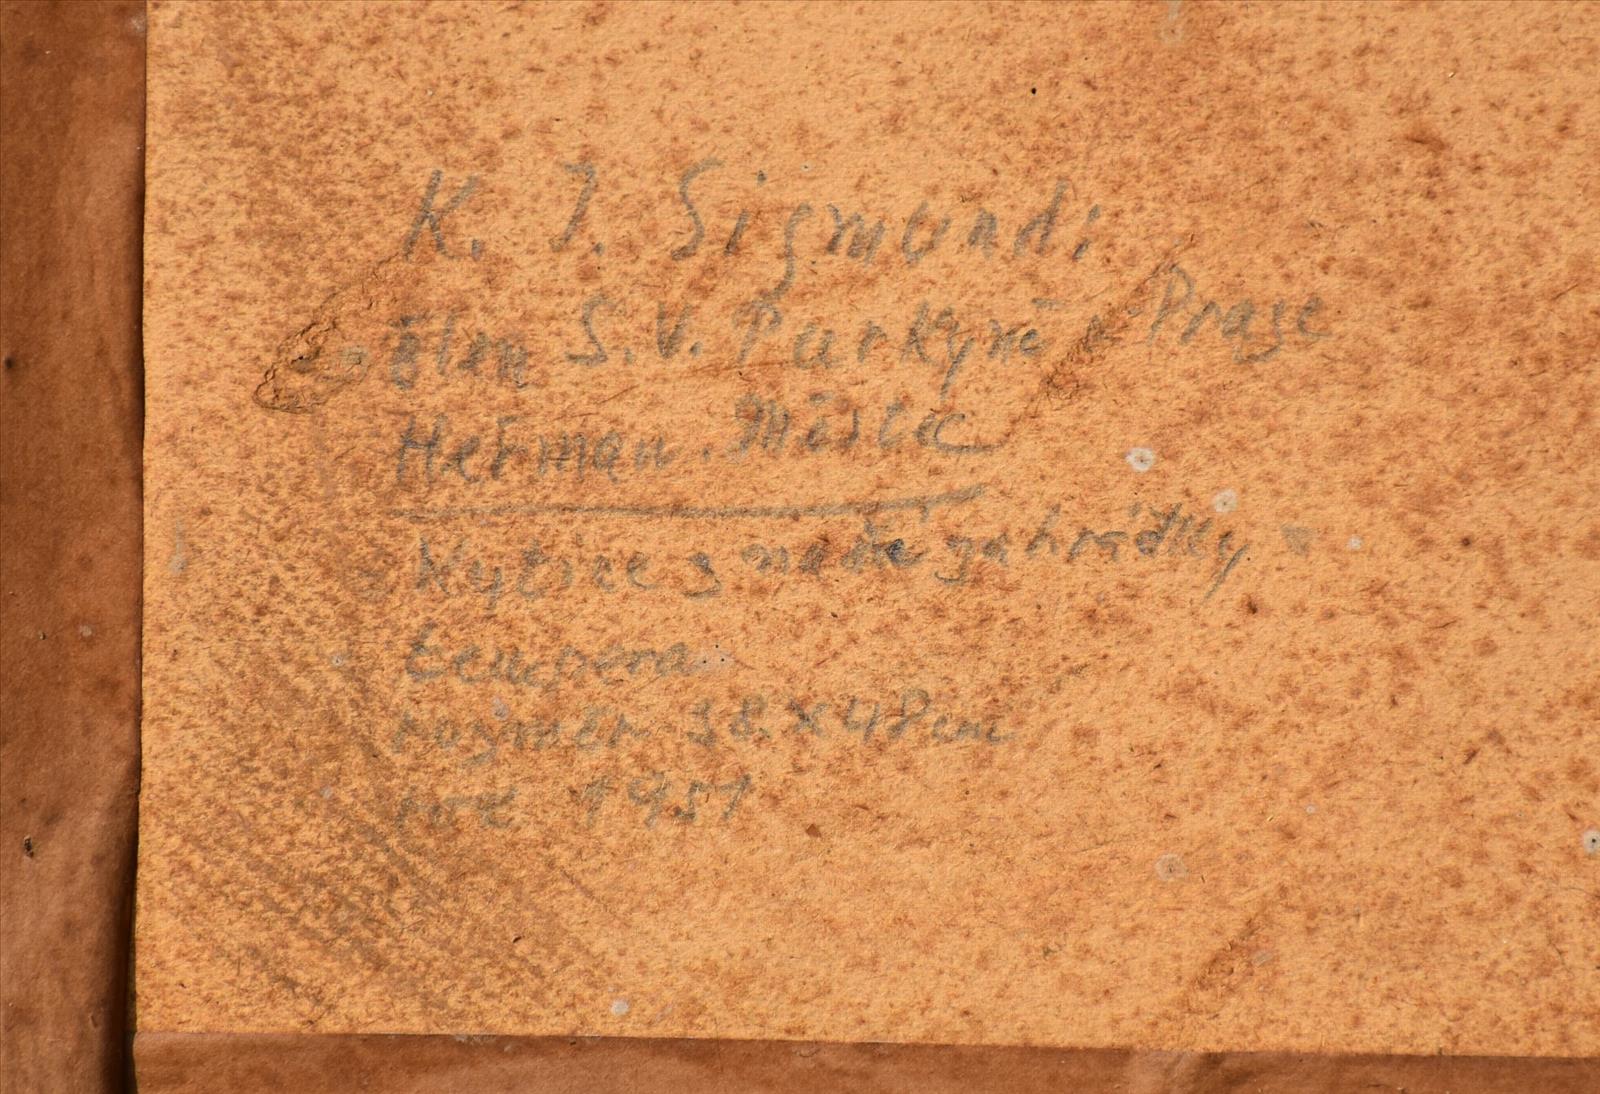 K. J. Sigmundi
člen S. V. Purkyně v Praze
Heřman. Městec
Kytice z naší zahrádky
tempera
rozměr 38 x 48 cm
rok 1951